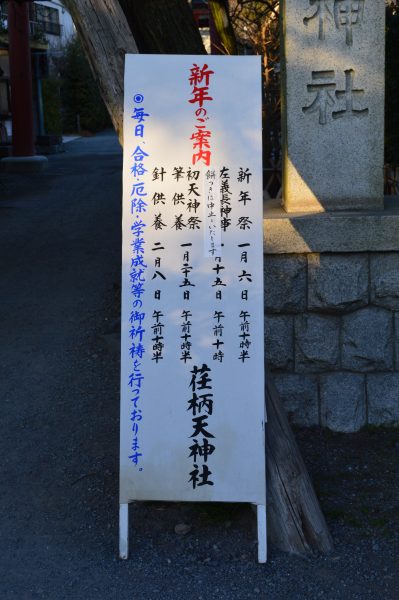 神社
新年のご案内
新年祭 一月六日 午前十時半
左義長神事 十五日 午前十時
餅つきは中止いたします
初天神祭
筆供養 一月二十五日 午前十時半
針供養 二月八日 午前十時半
荏柄天神社
◉毎日、合格・厄除・学業成就等の御祈祷を行っております。